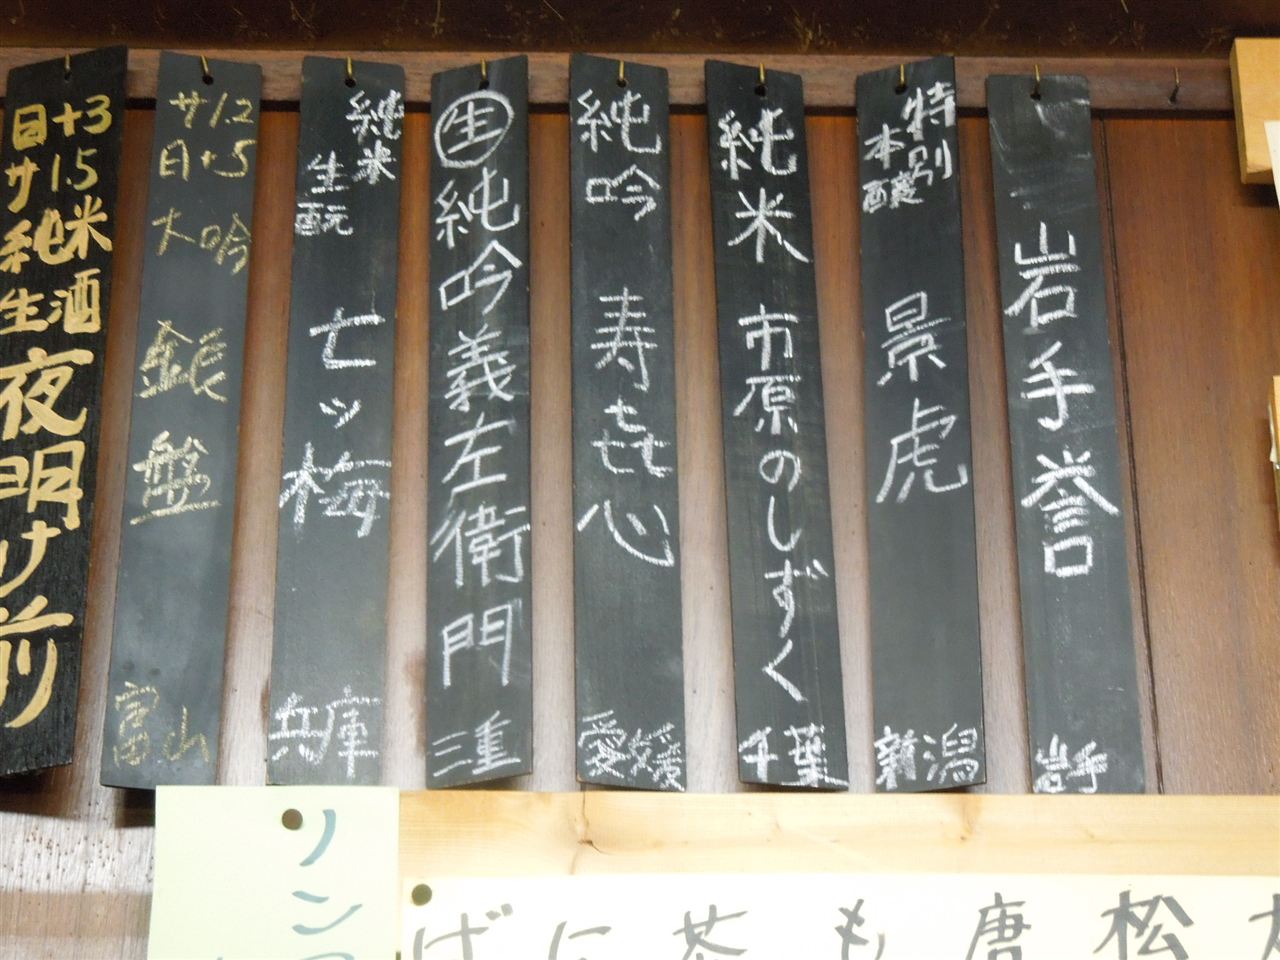 岩手誉
岩手
特別
本醸
景虎
新潟
純米
市原のしずく
千葉
純吟
寿㐂心
愛媛
生
純吟義左衛門
三重
純米
生酛
七ッ梅
兵庫
サ1.2
日+5
大吟
銀盤
富山
日+3
サ1.5
純米
生酒
夜明け前
リン
松
唐
も
茶
に
げ